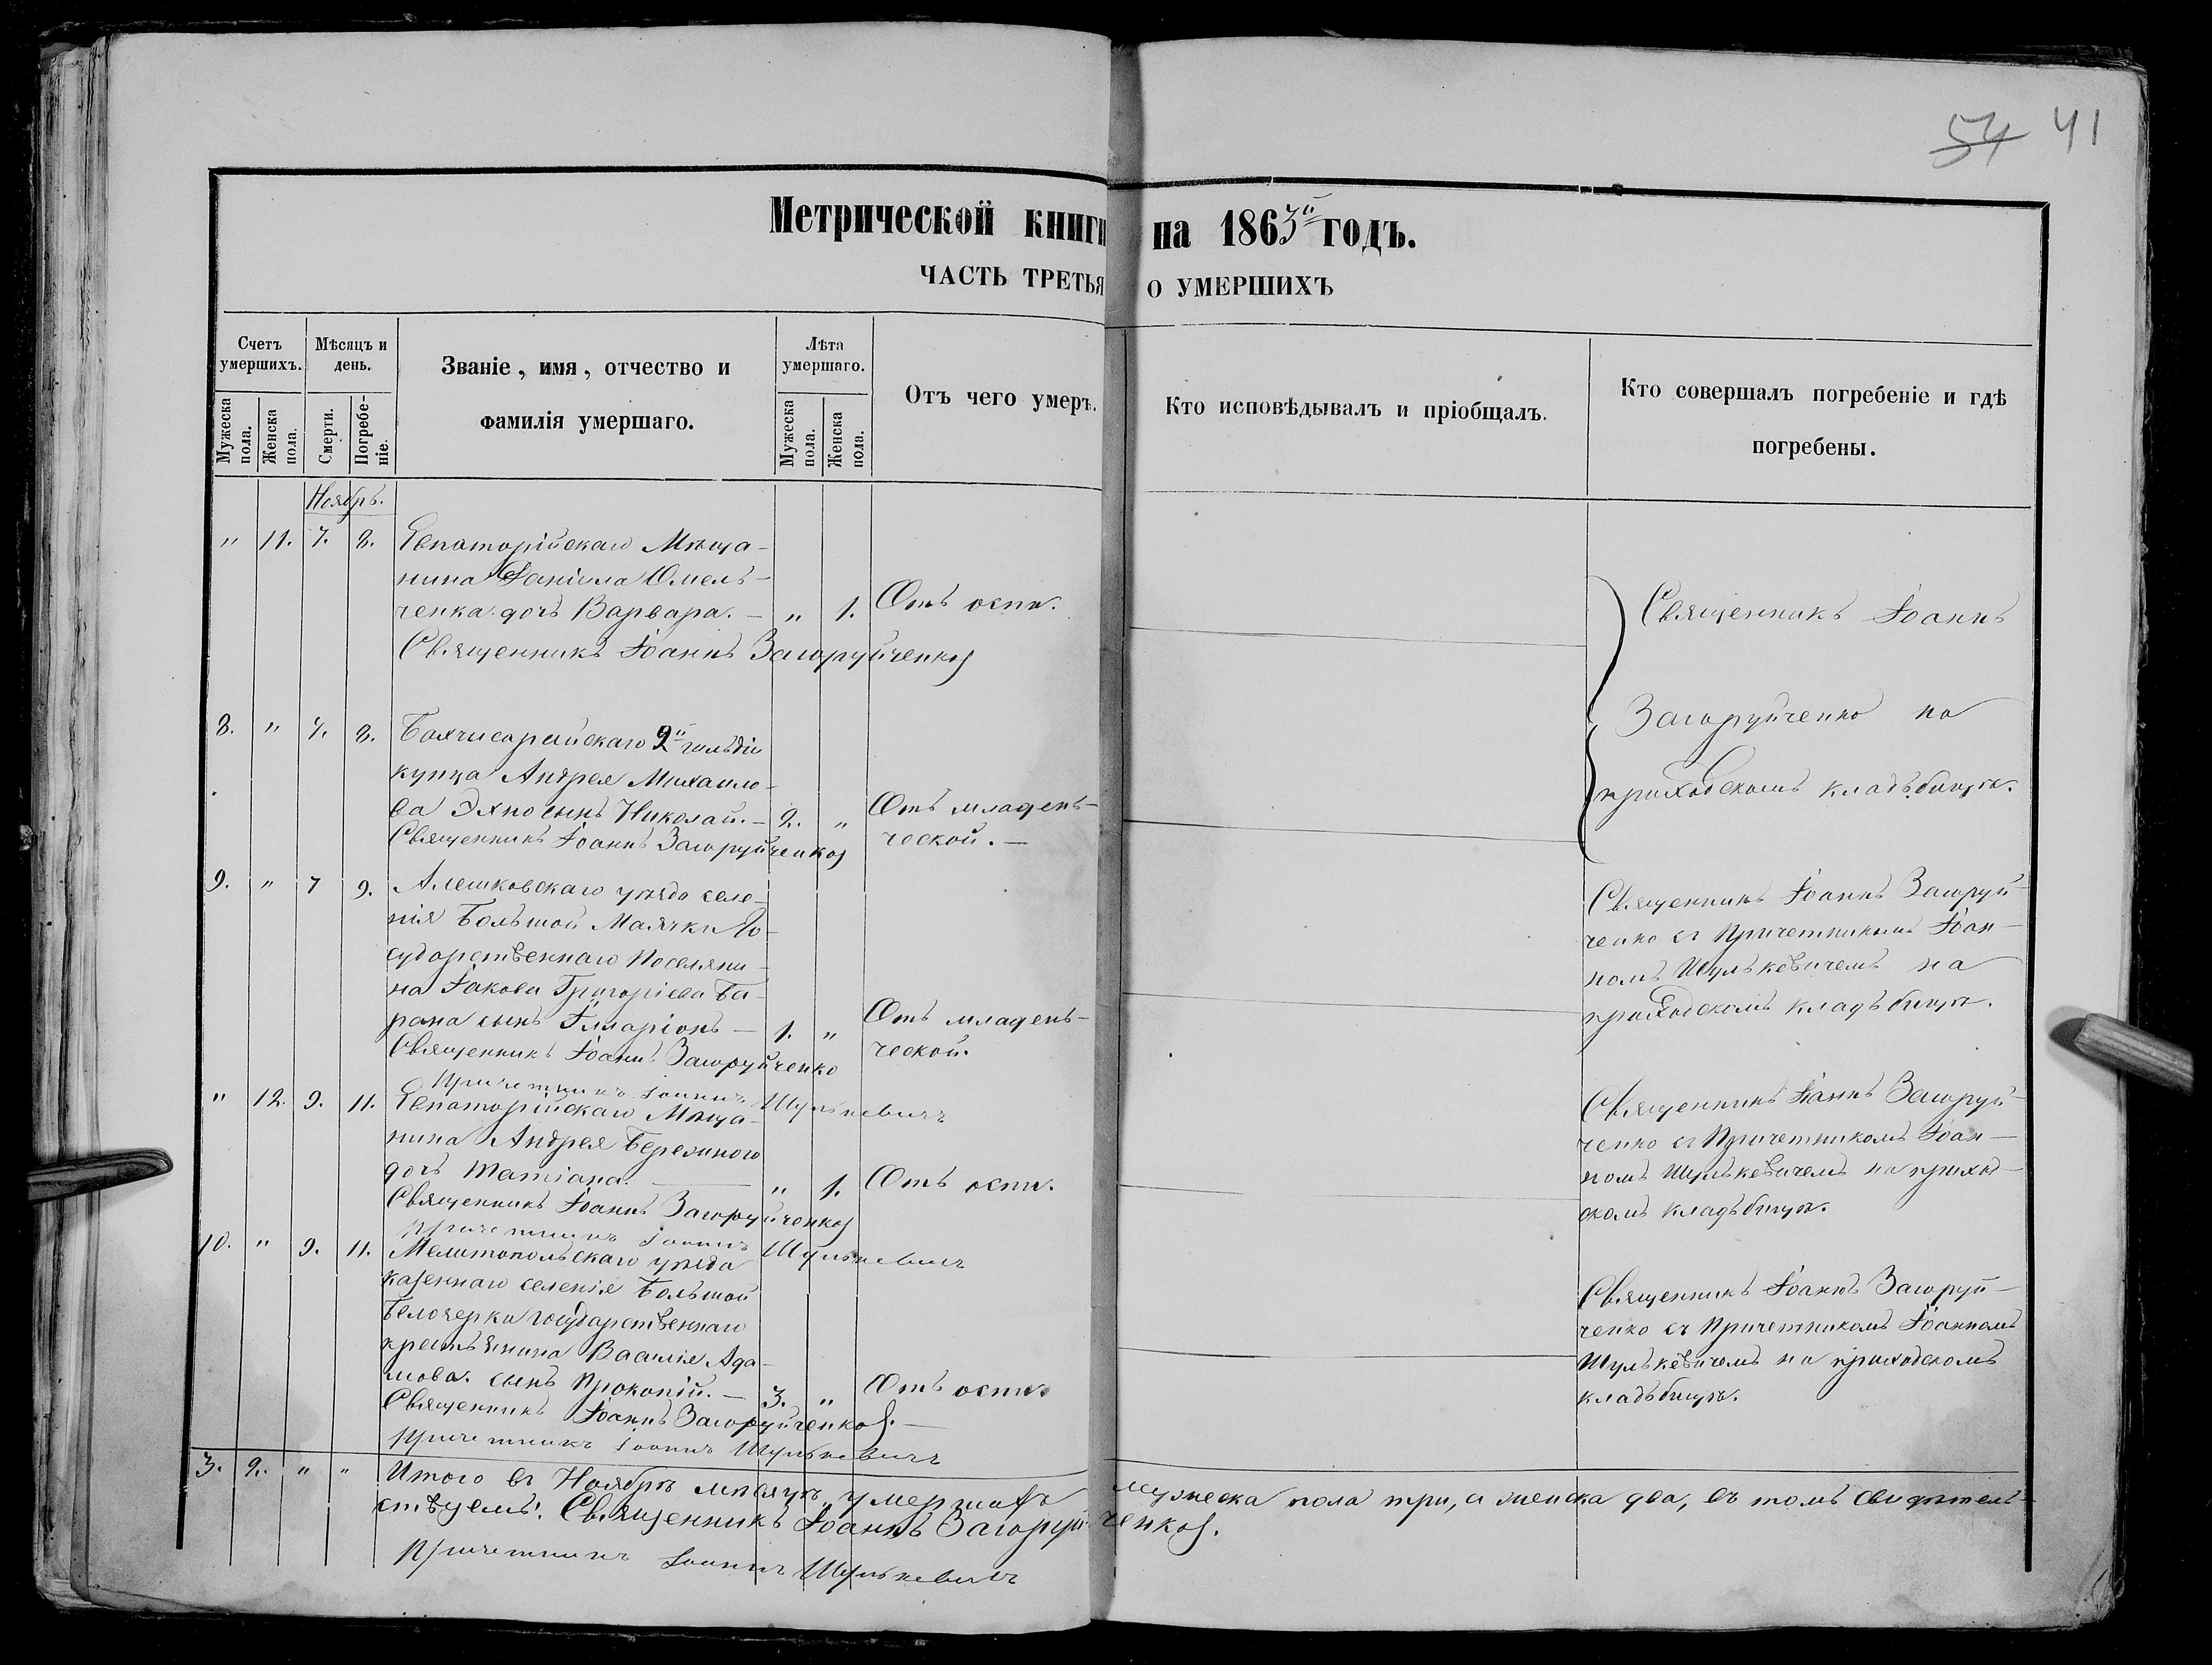 54 41
Метрической книги на 1863й годъ.
ЧАСТЬ ТРЕТЬЯ О УМЕРШИХЪ
Счетъ умершихъ.
Мужеска пола.
Женска пола.
Мѣсяцъ и день.
Смерти.
Погребеніе.
Званіе, имя, отчество и
фамилія умершаго.
Лѣта умершаго.
Мужеска пола.
Женска пола.
Отъ чего умеръ.
Кто исповѣдывалъ и пріобщалъ.
Кто совершалъ погребеніе и гдѣ
погребены.
Ноябрь.
" 11. 7. 8. Евпаторійскаго Мѣща-
нина Даніила Омель-
ченка дочь Варвара. — " 1. Отъ оспы.
Священникъ Іоаннъ Загоруйченко
Священникъ Іоаннъ
Загоруйченко на
приходскомъ кладьбищѣ.
8. " 7. 8. Бахчисарайскаго 2й гильдіи
купца Андрея Михайло-
ва Эхно сынъ Николай. — 2. " Отъ младен-
ческой. —
Священникъ Іоаннъ Загоруйченко
9. " 7 9. Алешковскаго уѣзда селе-
нія Большой Маячки Го-
сударственнаго Поселяни-
на Іакова Григоріева Ба-
рана сынъ Илларіонъ — 1. " Отъ младен-
ческой.
Священникъ Іоаннъ Загоруйченко
Причетникъ Іоаннъ Шулькевичъ
Священникъ Іоаннъ Загоруй-
ченко съ Причетникомъ Іоан-
номъ Шулькевичемъ на
приходскомъ кладьбищѣ.
" 12. 9. 11. Евпаторійскаго Мѣща-
нина Андрея Березиного
дочь Татіана. — " 1. Отъ оспы.
Священникъ Іоаннъ Загоруйченко
Причетникъ Іоаннъ Шулькевичъ
Священникъ Іоаннъ Загоруй-
ченко съ Причетникомъ Іоан-
номъ Шулькевичемъ на приход-
скомъ кладьбищѣ.
10. " 9. 11. Мелитопольскаго уѣзда
казеннаго селенія Большой
Белозерки государственнаго
крестьянина Василія Ада-
мова. сынъ Прокопій. — 3. " Отъ оспы.
Священникъ Іоаннъ Загоруйченко. —
Причетникъ Іоаннъ Шулькевичъ
Священникъ Іоаннъ Загоруй-
ченко съ Причетникомъ Іоанномъ
Шулькевичемъ на приходскомъ
кладьбищѣ.
3. 2. " " Итого въ Ноябрѣ мѣсяцѣ умершахъ мужеска пола три, а женска два, въ томъ свидѣтель-
ствуемъ: Священникъ Іоаннъ Загоруйченко.
Причетникъ Іоаннъ Шулькевичъ